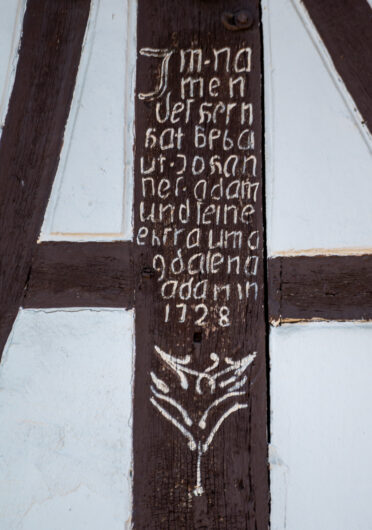 Im·na
men
des hern
hat beba
ut·Johan
nes·adam
und seine
ehfrau ma
gdalena
adamin
1728